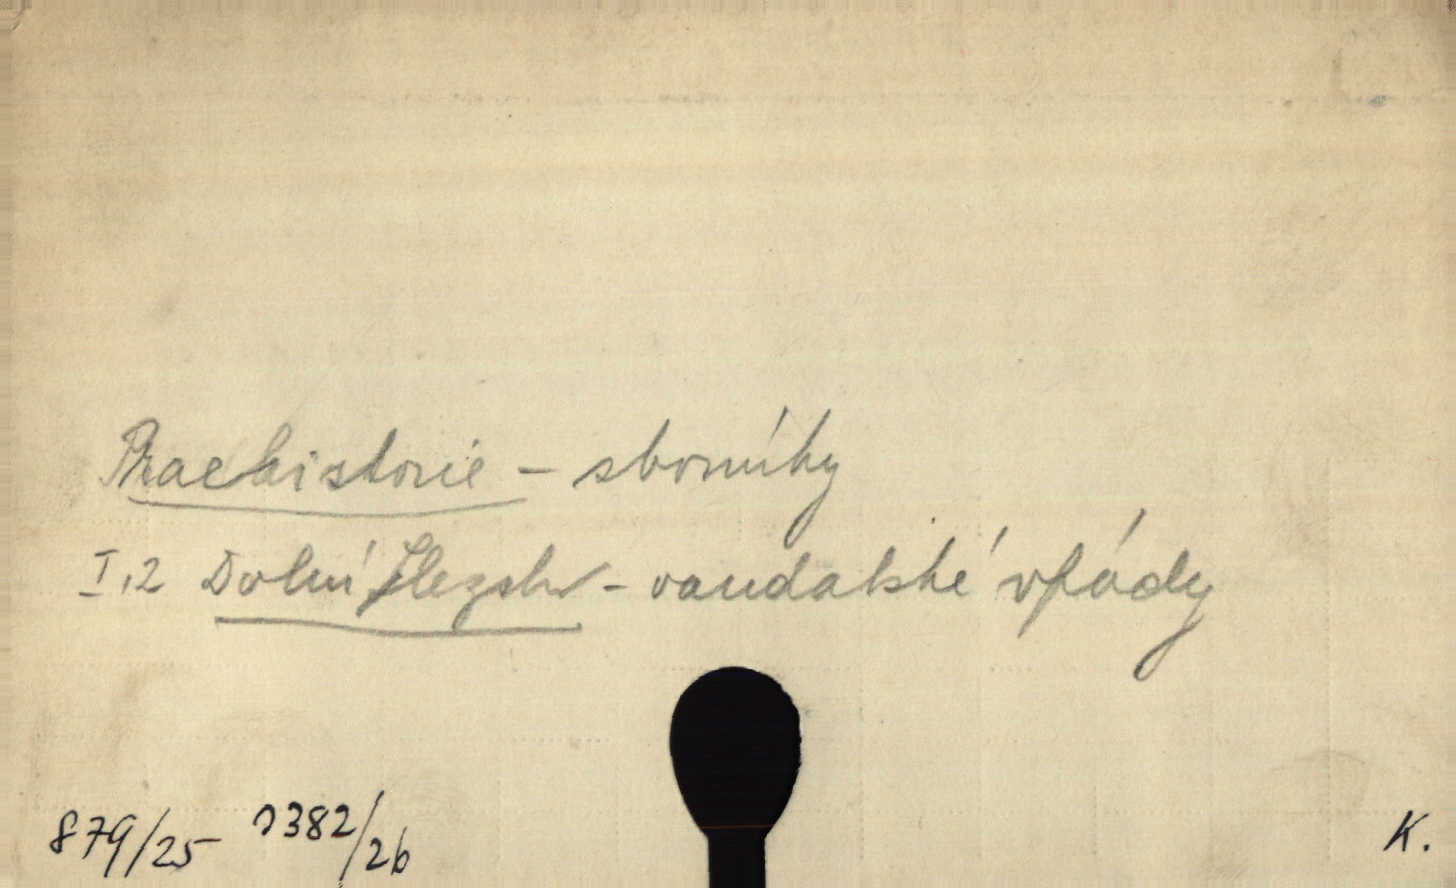 Praehistorie - sborníky
I,2 Dolní Slezsko - vandalské vpády
879/25 1382/26 K.